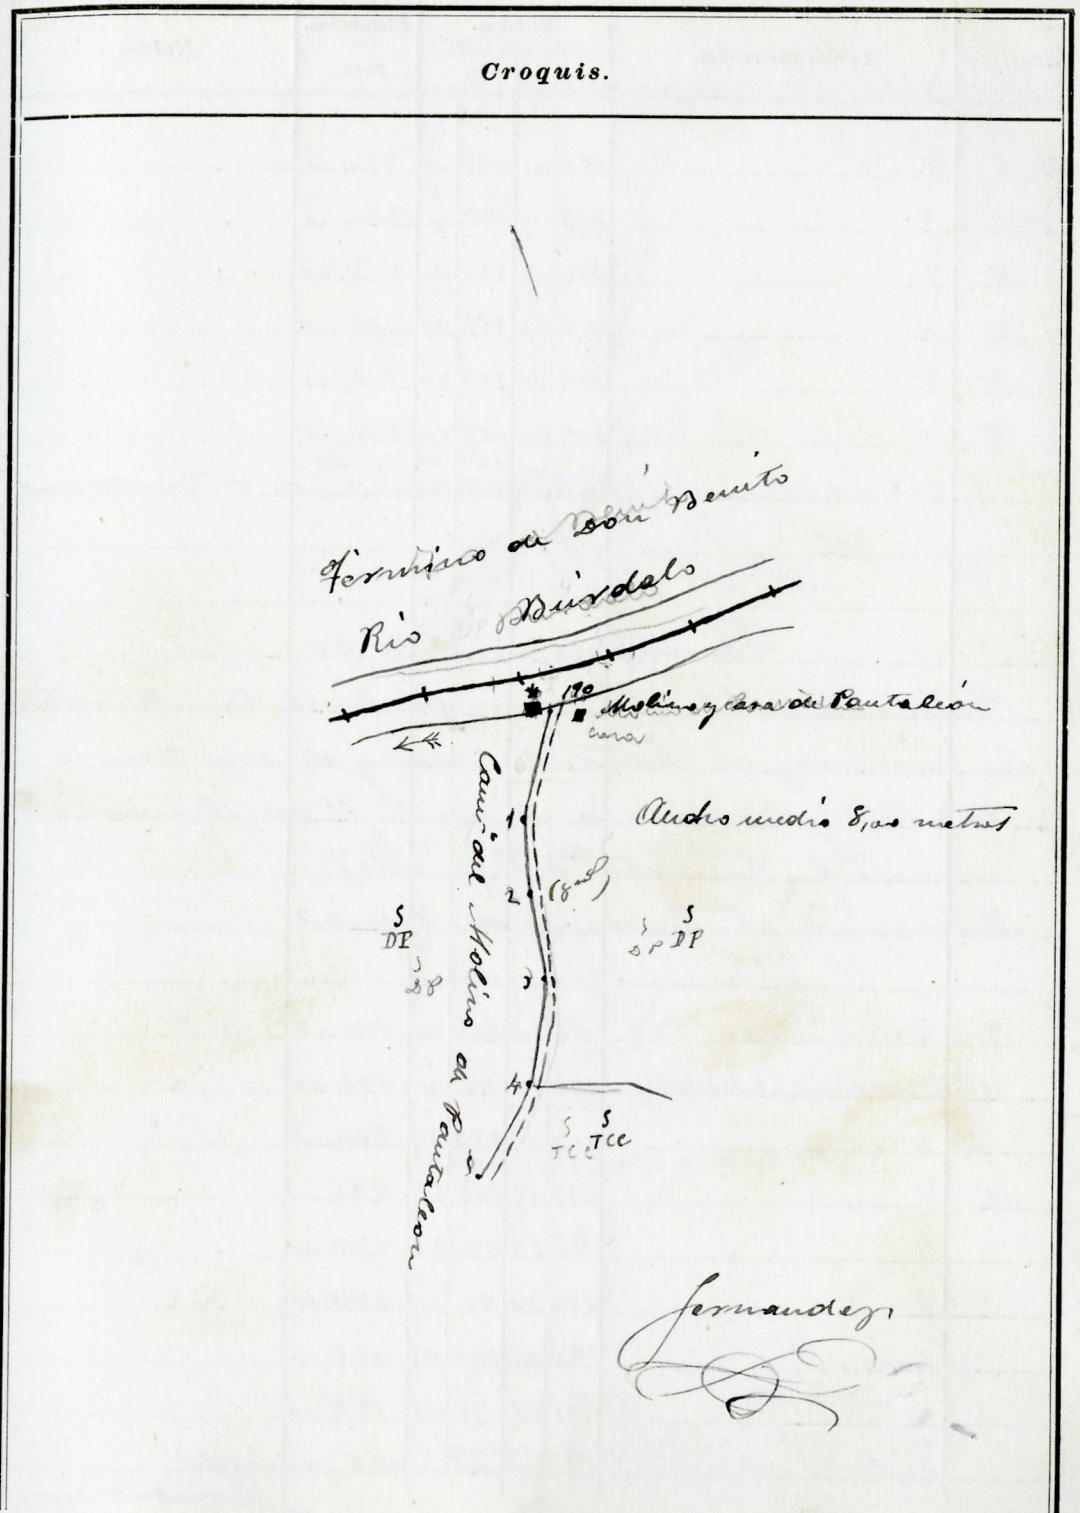 Croquis.
Término de Don Benito
Río Búrdalo
190
Molino y Casa de Pantaleón
casa
Camº del Molino de Pantaleon
1
Ancho medio 8,00 metros
2
S
DP
S
DP
3
4
S
TCC
S
TCC
Fernandez